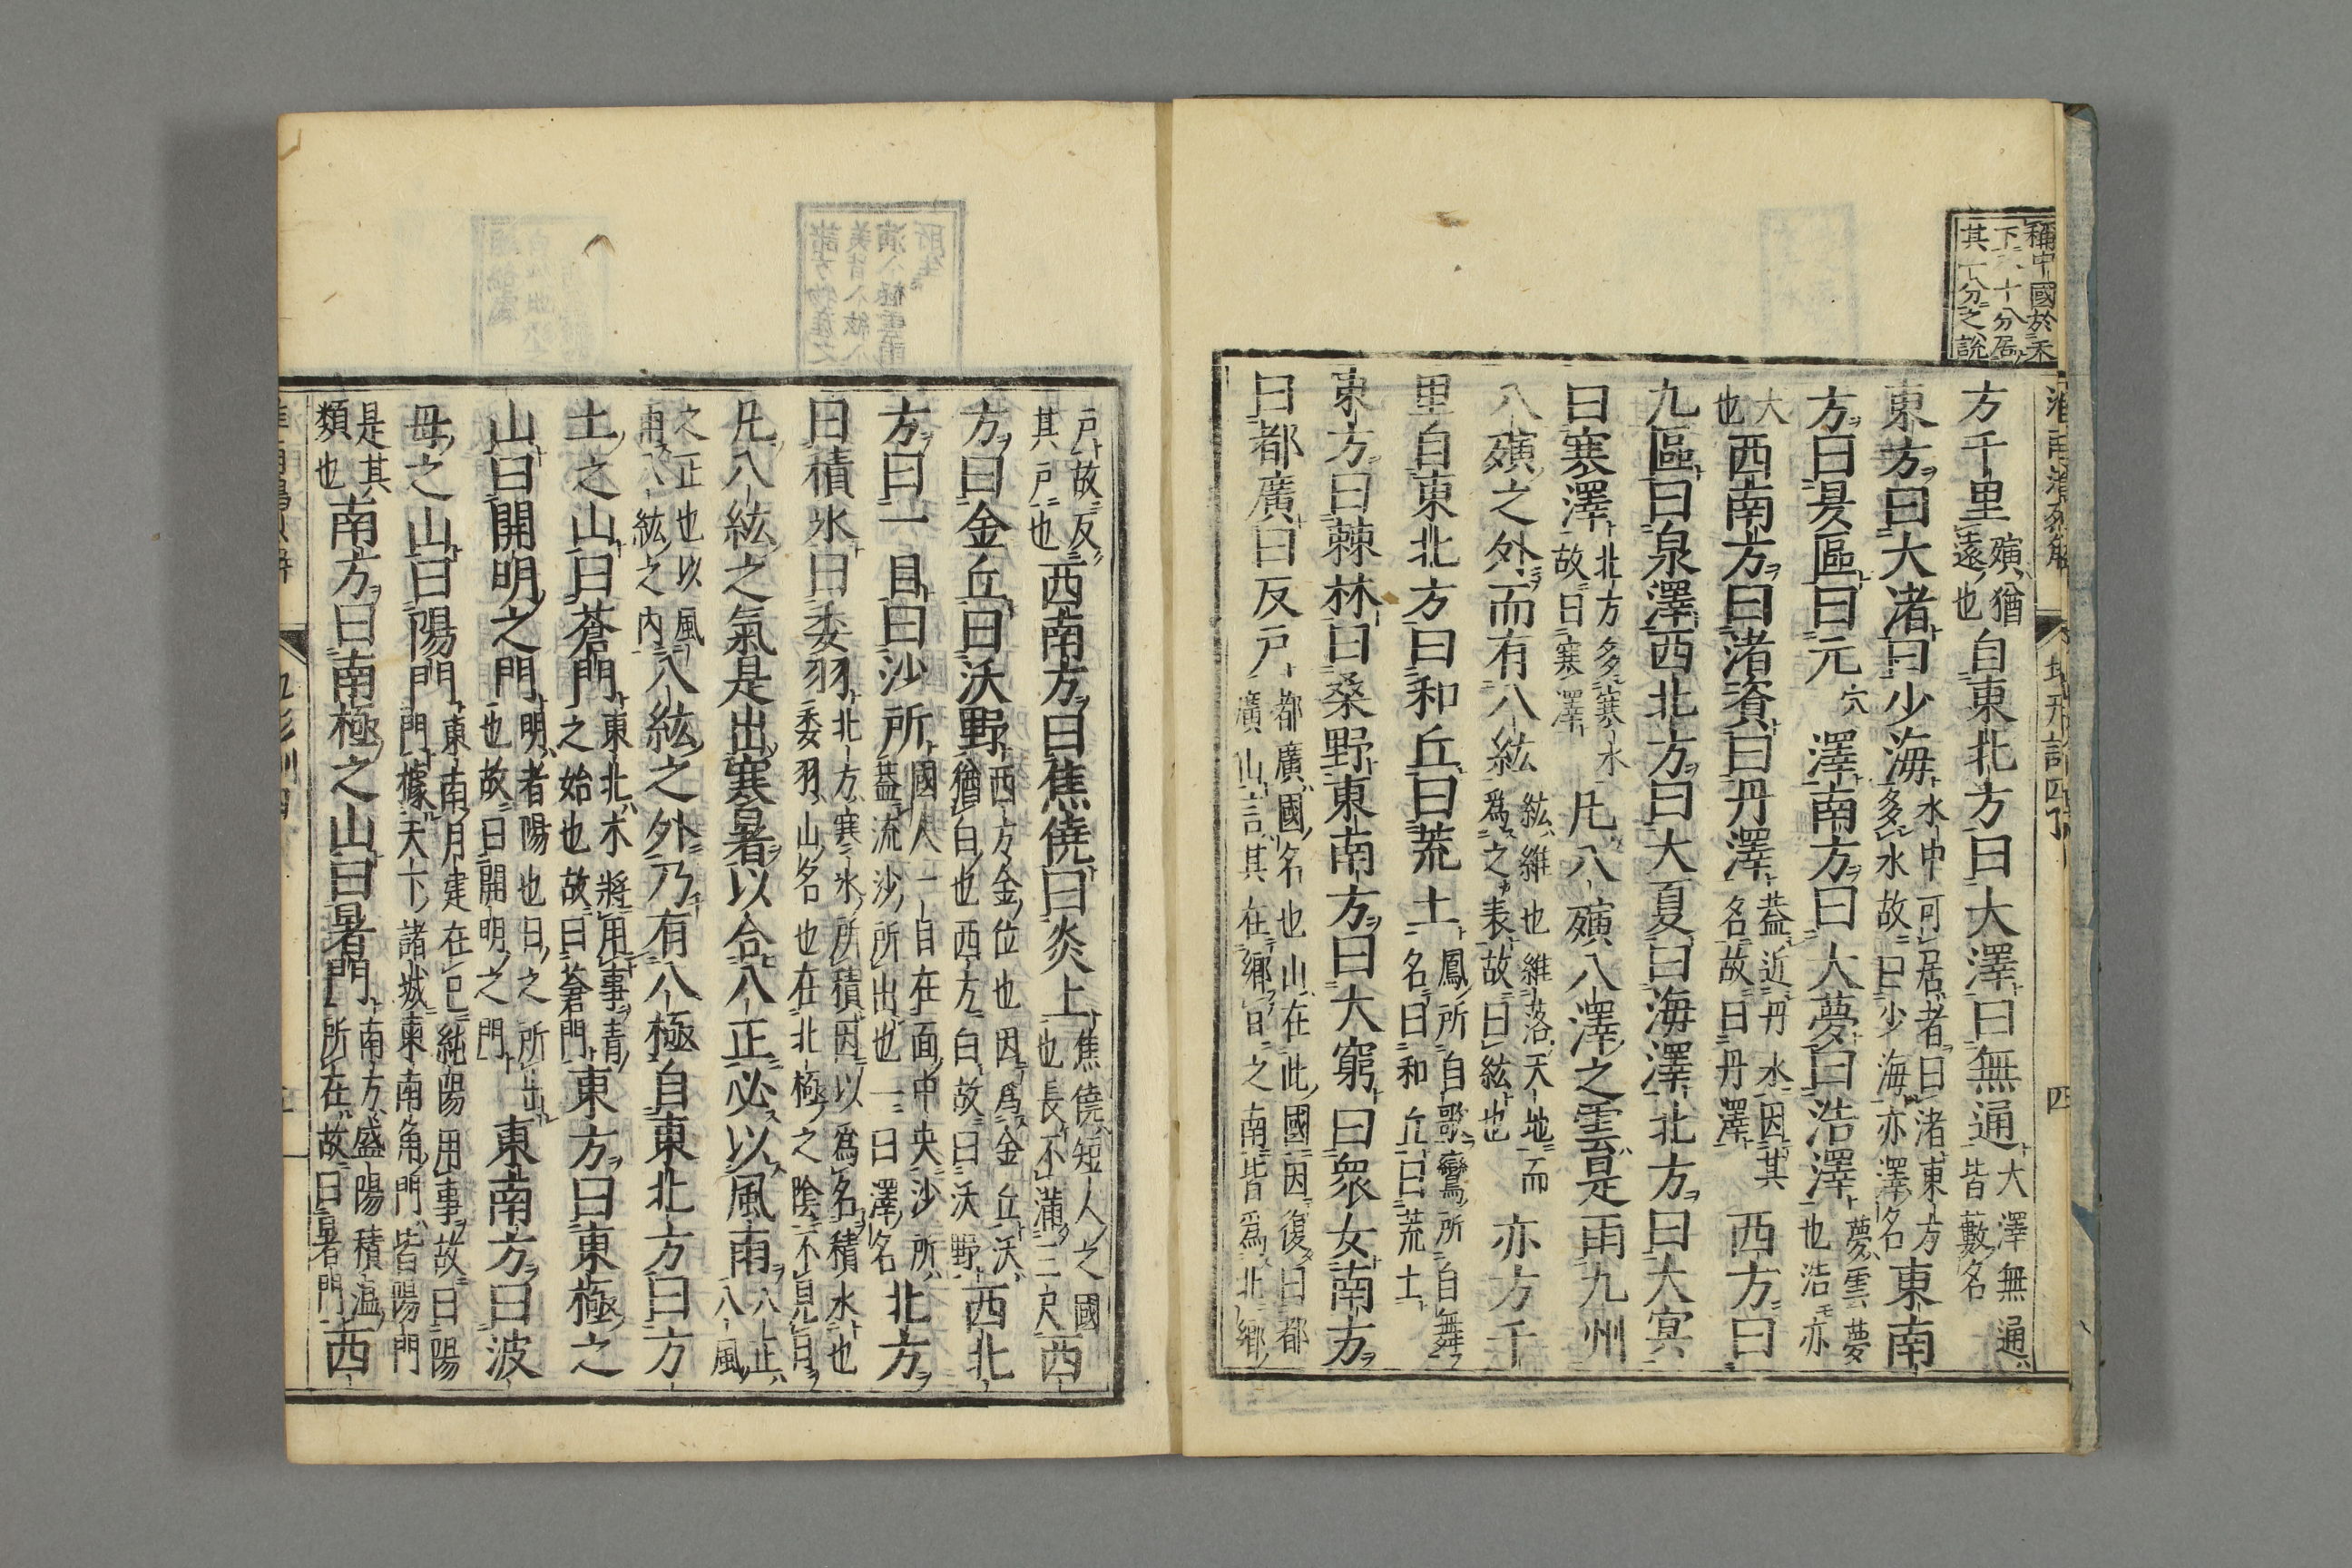 稱中國於天
下八十分居
其一分之說
方千里殥猶遠也自東北方曰大澤曰無通大澤無通皆藪名
東方曰大渚曰少海水中可居者曰渚東方多水故曰少海亦澤名東南
方曰具區曰元澤南方曰大夢曰浩澤夢雲夢也浩亦
大也西南方曰渚資曰丹澤蓋近丹水因其名故曰丹澤西方曰
九區曰泉澤西北方曰大夏曰海澤北方曰大冥
曰寒澤北方多寒水故曰寒澤凡八殥八澤之雲是雨九州
八殥之外而有八紘紘維也維落天地而爲之表故曰紘也亦方千
里自東北方曰和丘曰荒土鳳所自歌鸞所自舞名曰和丘曰荒土
東方曰棘林曰桑野東南方曰大窮曰衆女南方
曰都廣曰反戶都廣國名也山在此國因復曰都廣山言其在鄉日之南皆爲北鄉
戶故反其戶也西南方曰焦僥曰炎土焦僥短人之國也長不滿三尺西
方曰金丘曰沃野西方金位也因爲金丘沃猶白也西方白故曰沃野西北
方曰一目曰沙所國人一目在面中央沙所蓋流沙所出也一曰澤名北方
曰積氷曰委羽北方寒氷所積因以爲名積氷也委羽山名也在北極之陰不見日
凡八紘之氣是出寒暑以合八正必以風雨八正八風
之正也以風雨八紘之內八紘之外乃有八極自東北方曰方
土之山曰蒼門東北木將用事青之始也故曰蒼門東方曰東極之
山曰開明之門明者陽也日之所出也故曰開明之門東南方曰波
母之山曰陽門東南月建在巳純陽用事故曰陽門據天下諸城東南角門皆陽門
是其類也南方曰南極之山曰暑門南方盛陽積溫所在故曰暑門西